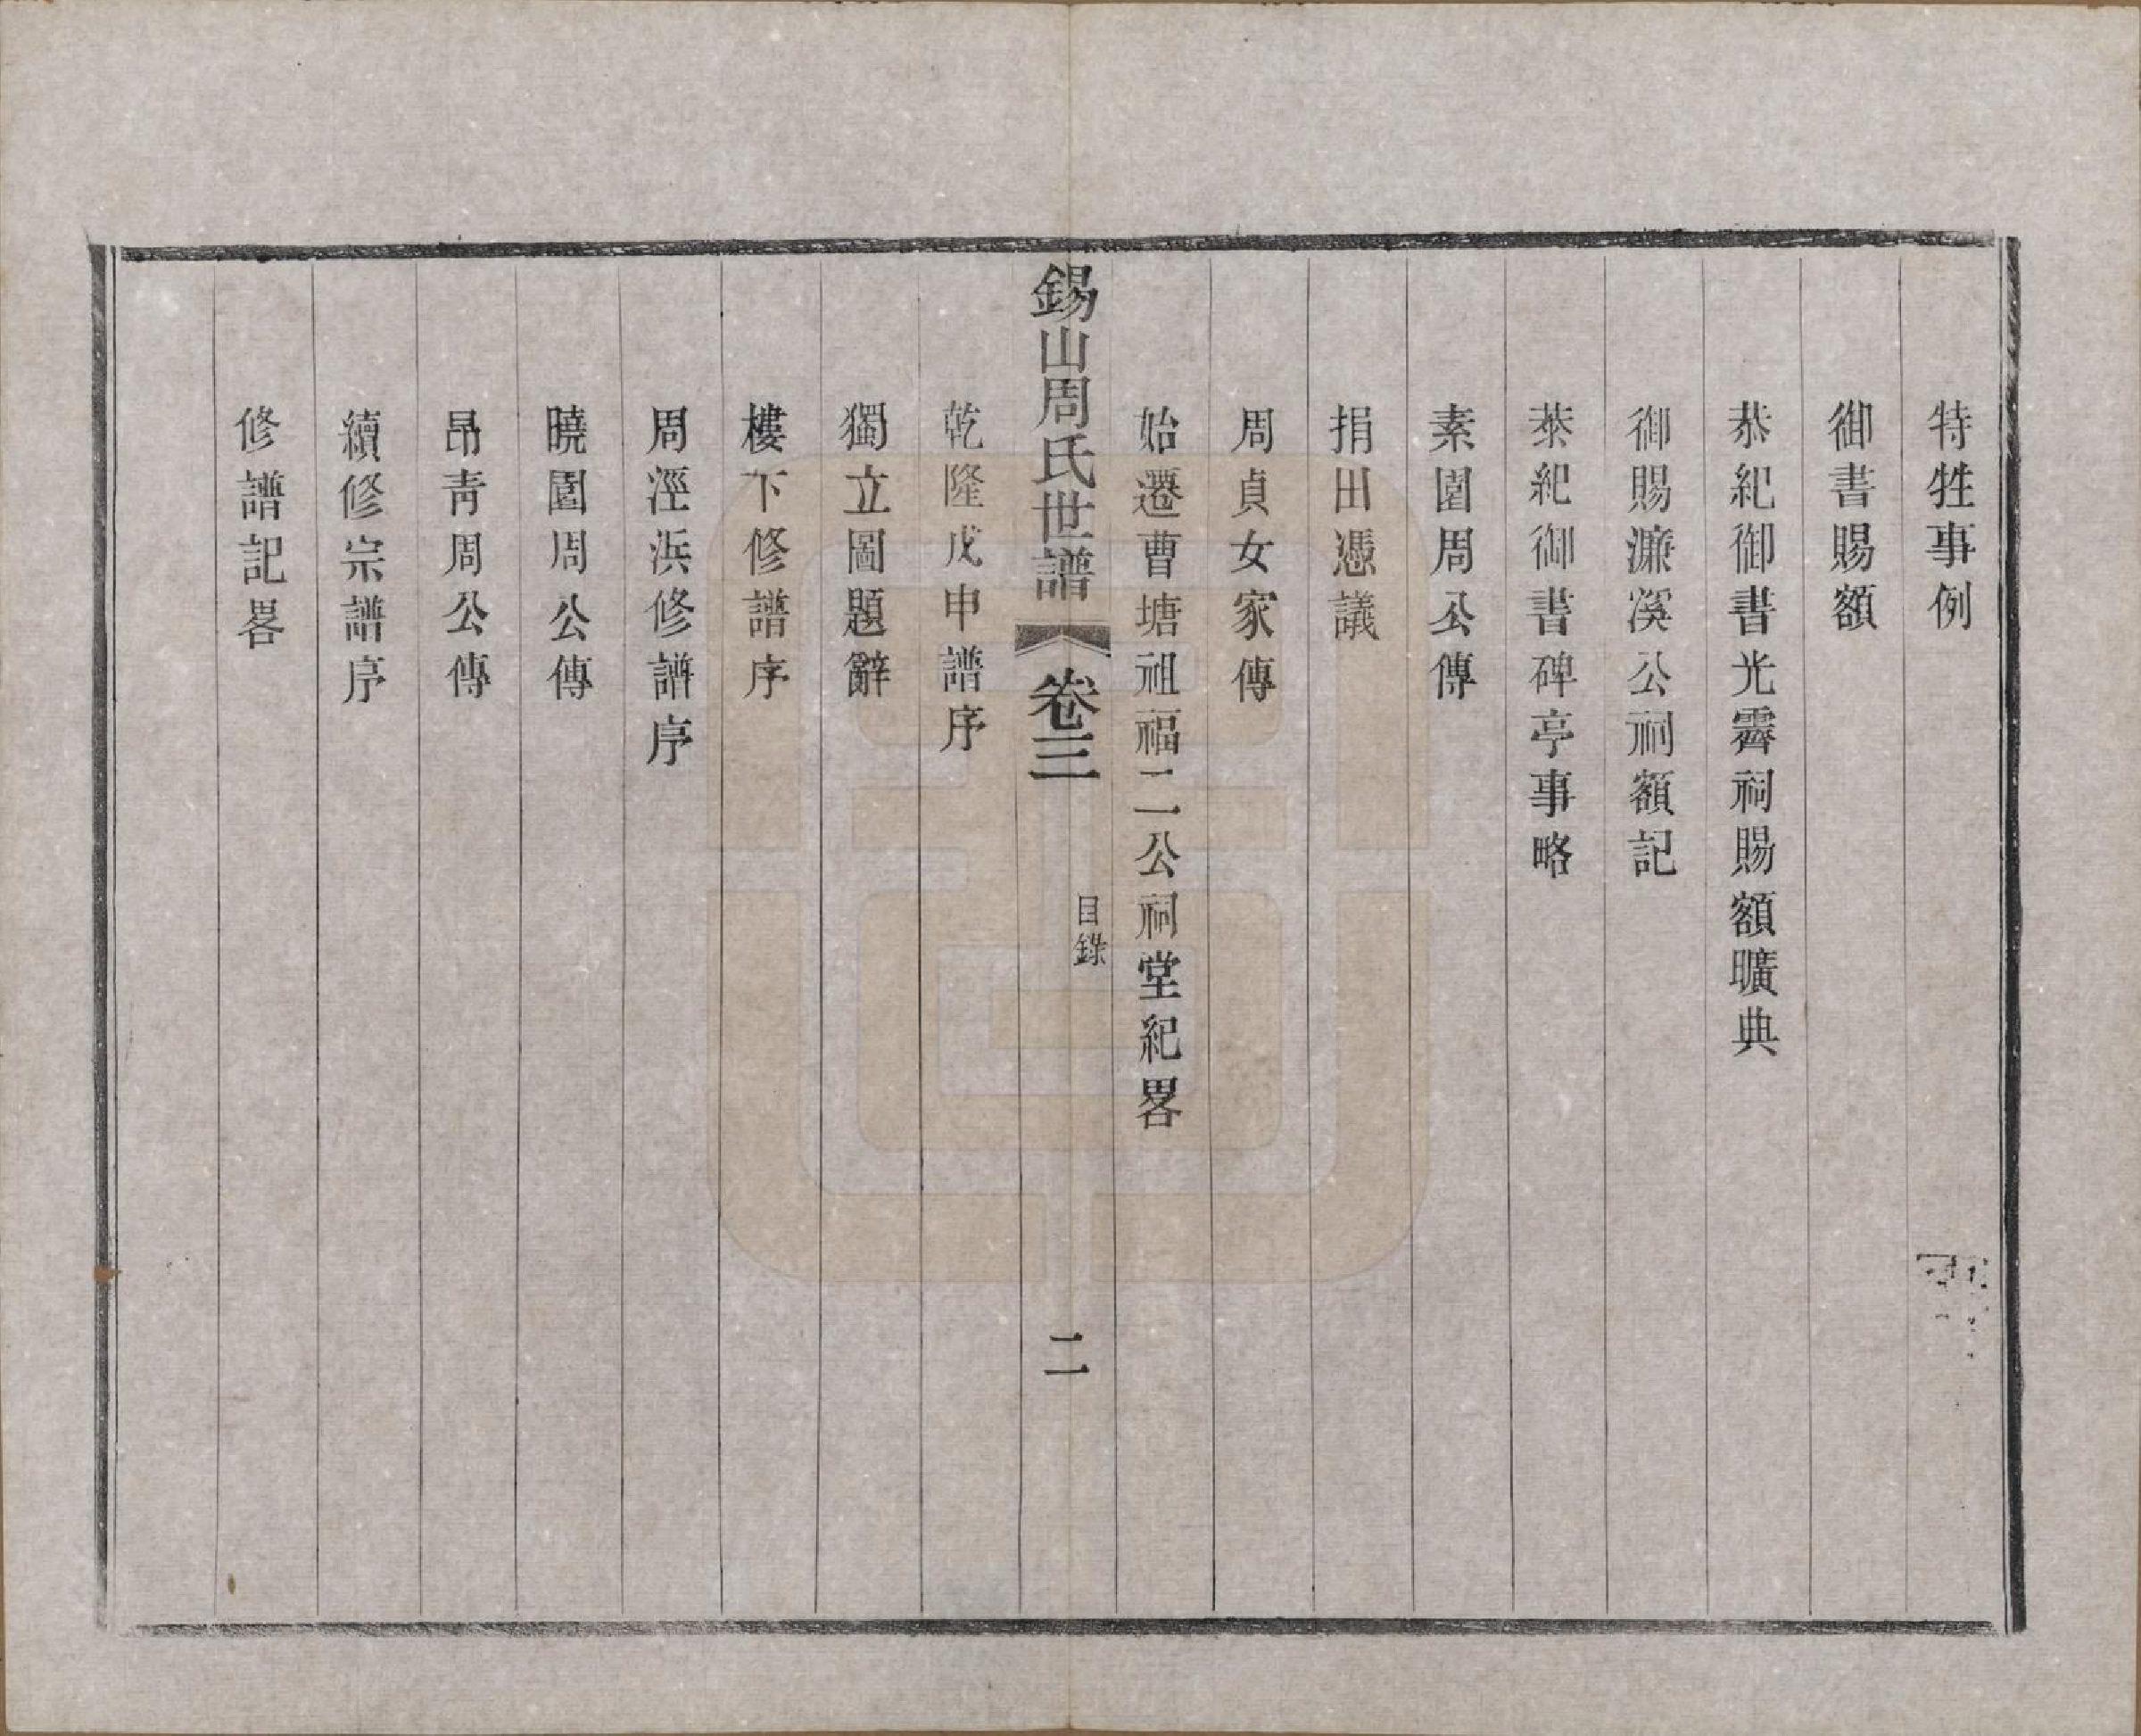 特牲事例
御書賜額
恭紀御書光霽祠賜額曠典
御賜濂溪公祠額記
恭紀御書碑亭事略
素園周公傳
捐田憑議
周貞女家傳
始遷曹塘祖福二公祠堂紀畧
錫山周氏世譜
卷三
目錄
二
乾隆戊申譜序
獨立圖題辭
樓下修譜序
周涇浜修譜序
曉園周公傳
昂青周公傳
續修宗譜序
修譜記畧